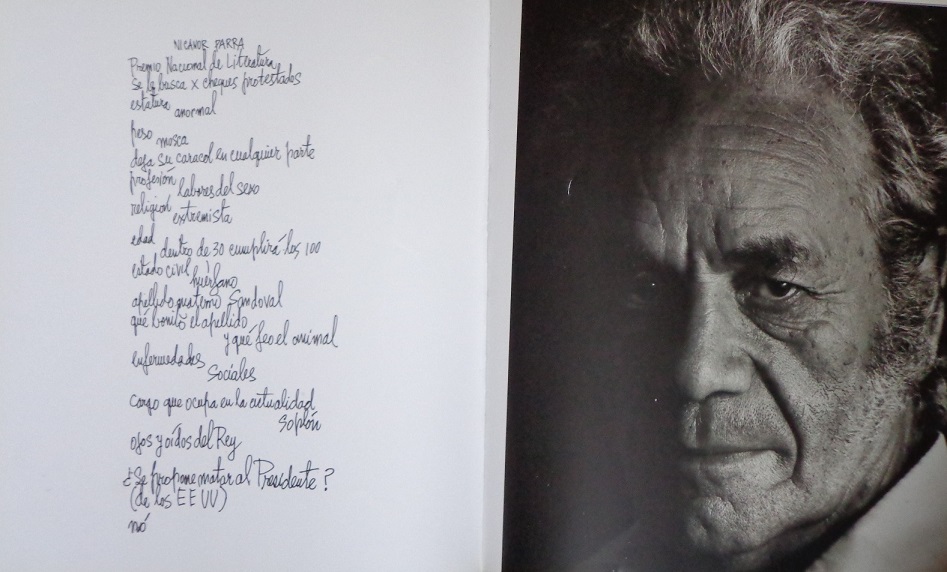 NICANOR PARRA
Premio Nacional de Literatura
Se le busca x cheques protestados
estatura anormal
peso mosca
deja su caracol en cualquier parte
profesión labores del sexo
religion extremista
edad dentro de 30 cumplirá los 100
estado civil huérfano
apellido materno Sandoval
qué bonito el apellido
y qué feo el animal
enfermedades
Sociales
cargo que ocupa en la actualidad
soplón
ojos y oídos del Rey
¿Se propone matar al Presidente?
(de los EEUU)
nó